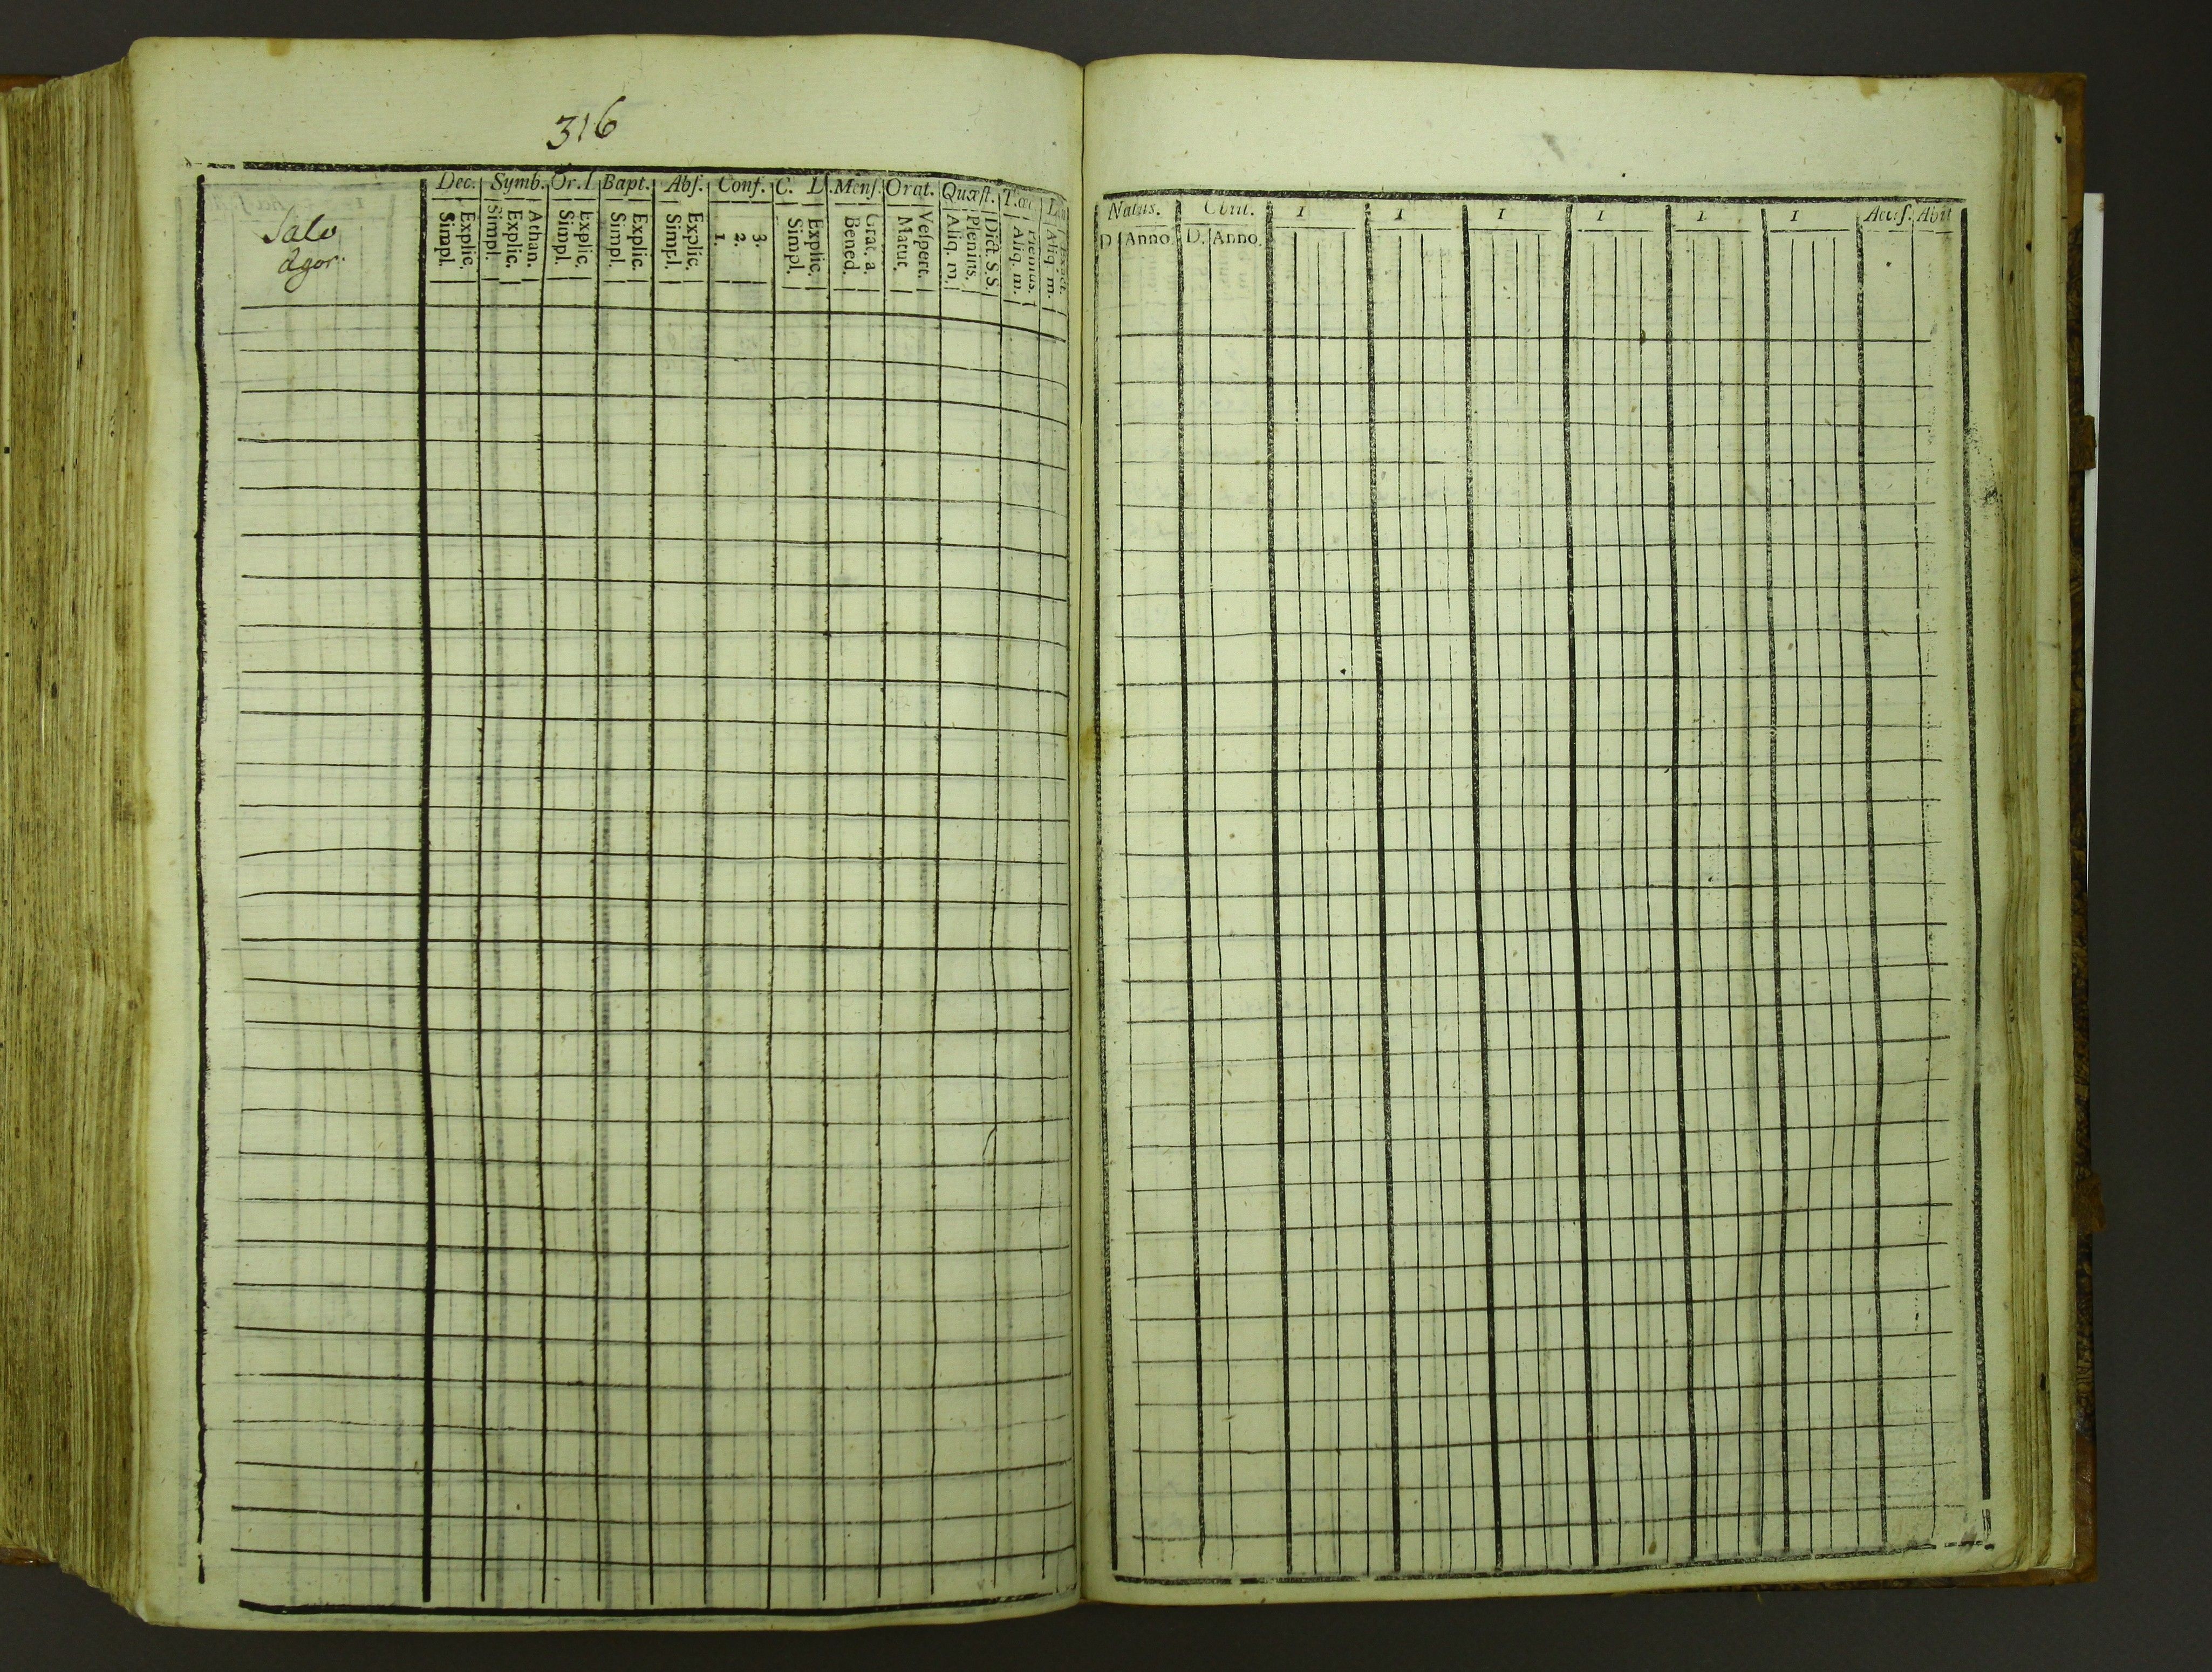 316
Dec. Symb. Or. Bapt. Abſ. Conf. C. Menſ. Orat. Quæſt.
Salo
ägor.
Explic.
Simpl.
Athan.
Explic.
Simpl.
Explic.
Simpl.
Explic.
Simpl.
Explic.
Simpl.
3.
2.
1.
Explic.
Simpl.
Grat. a.
Bened.
Veſpert.
Matut.
Dict. S.S.
Plenius.
Aliq. m.
Plenius.
Aliq. m.
Aliq. m.
Natus. Obiit. 1 1 1 1 1 1 Acceſ. Abiit
D. Anno D. Anno